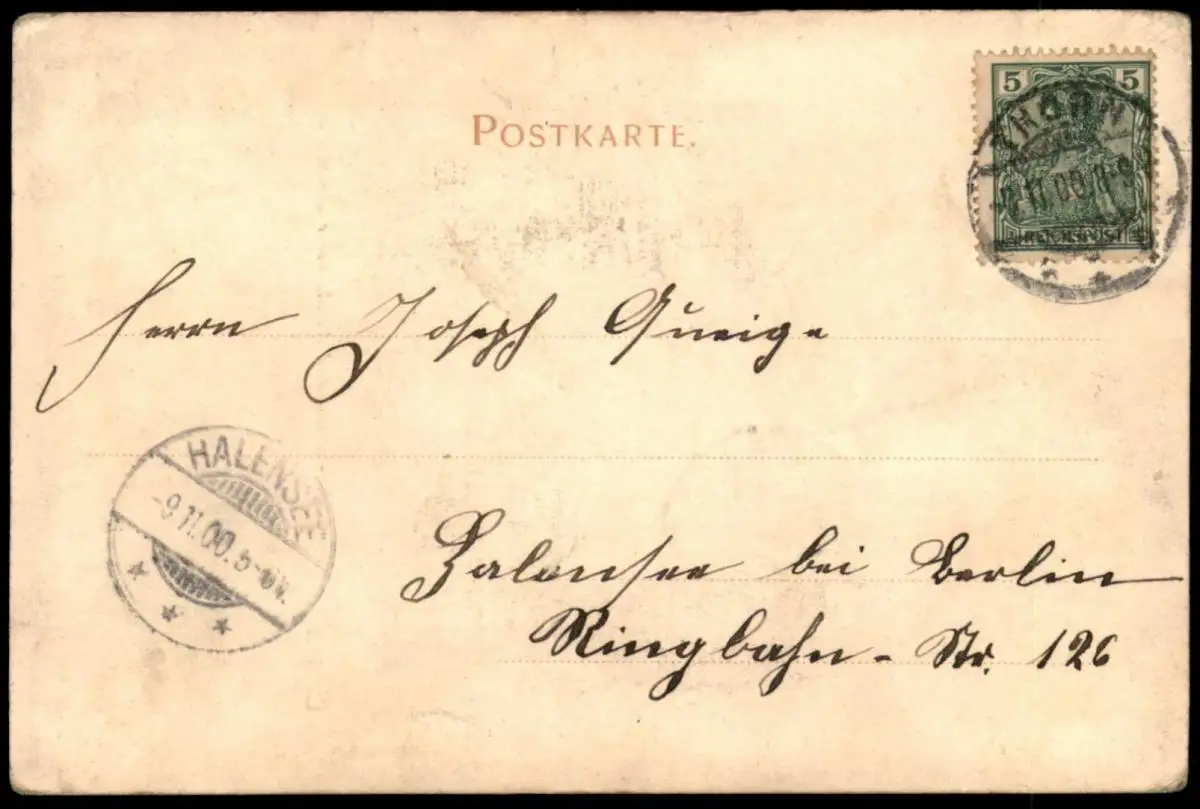 POSTKARTE.
5 5
THORN
11.00.
REICHSPOST
Herrn Joseph
HALENSEE
-9.11.00.5-6N.
Halensee bei Berlin
Ringbahn-Str. 126